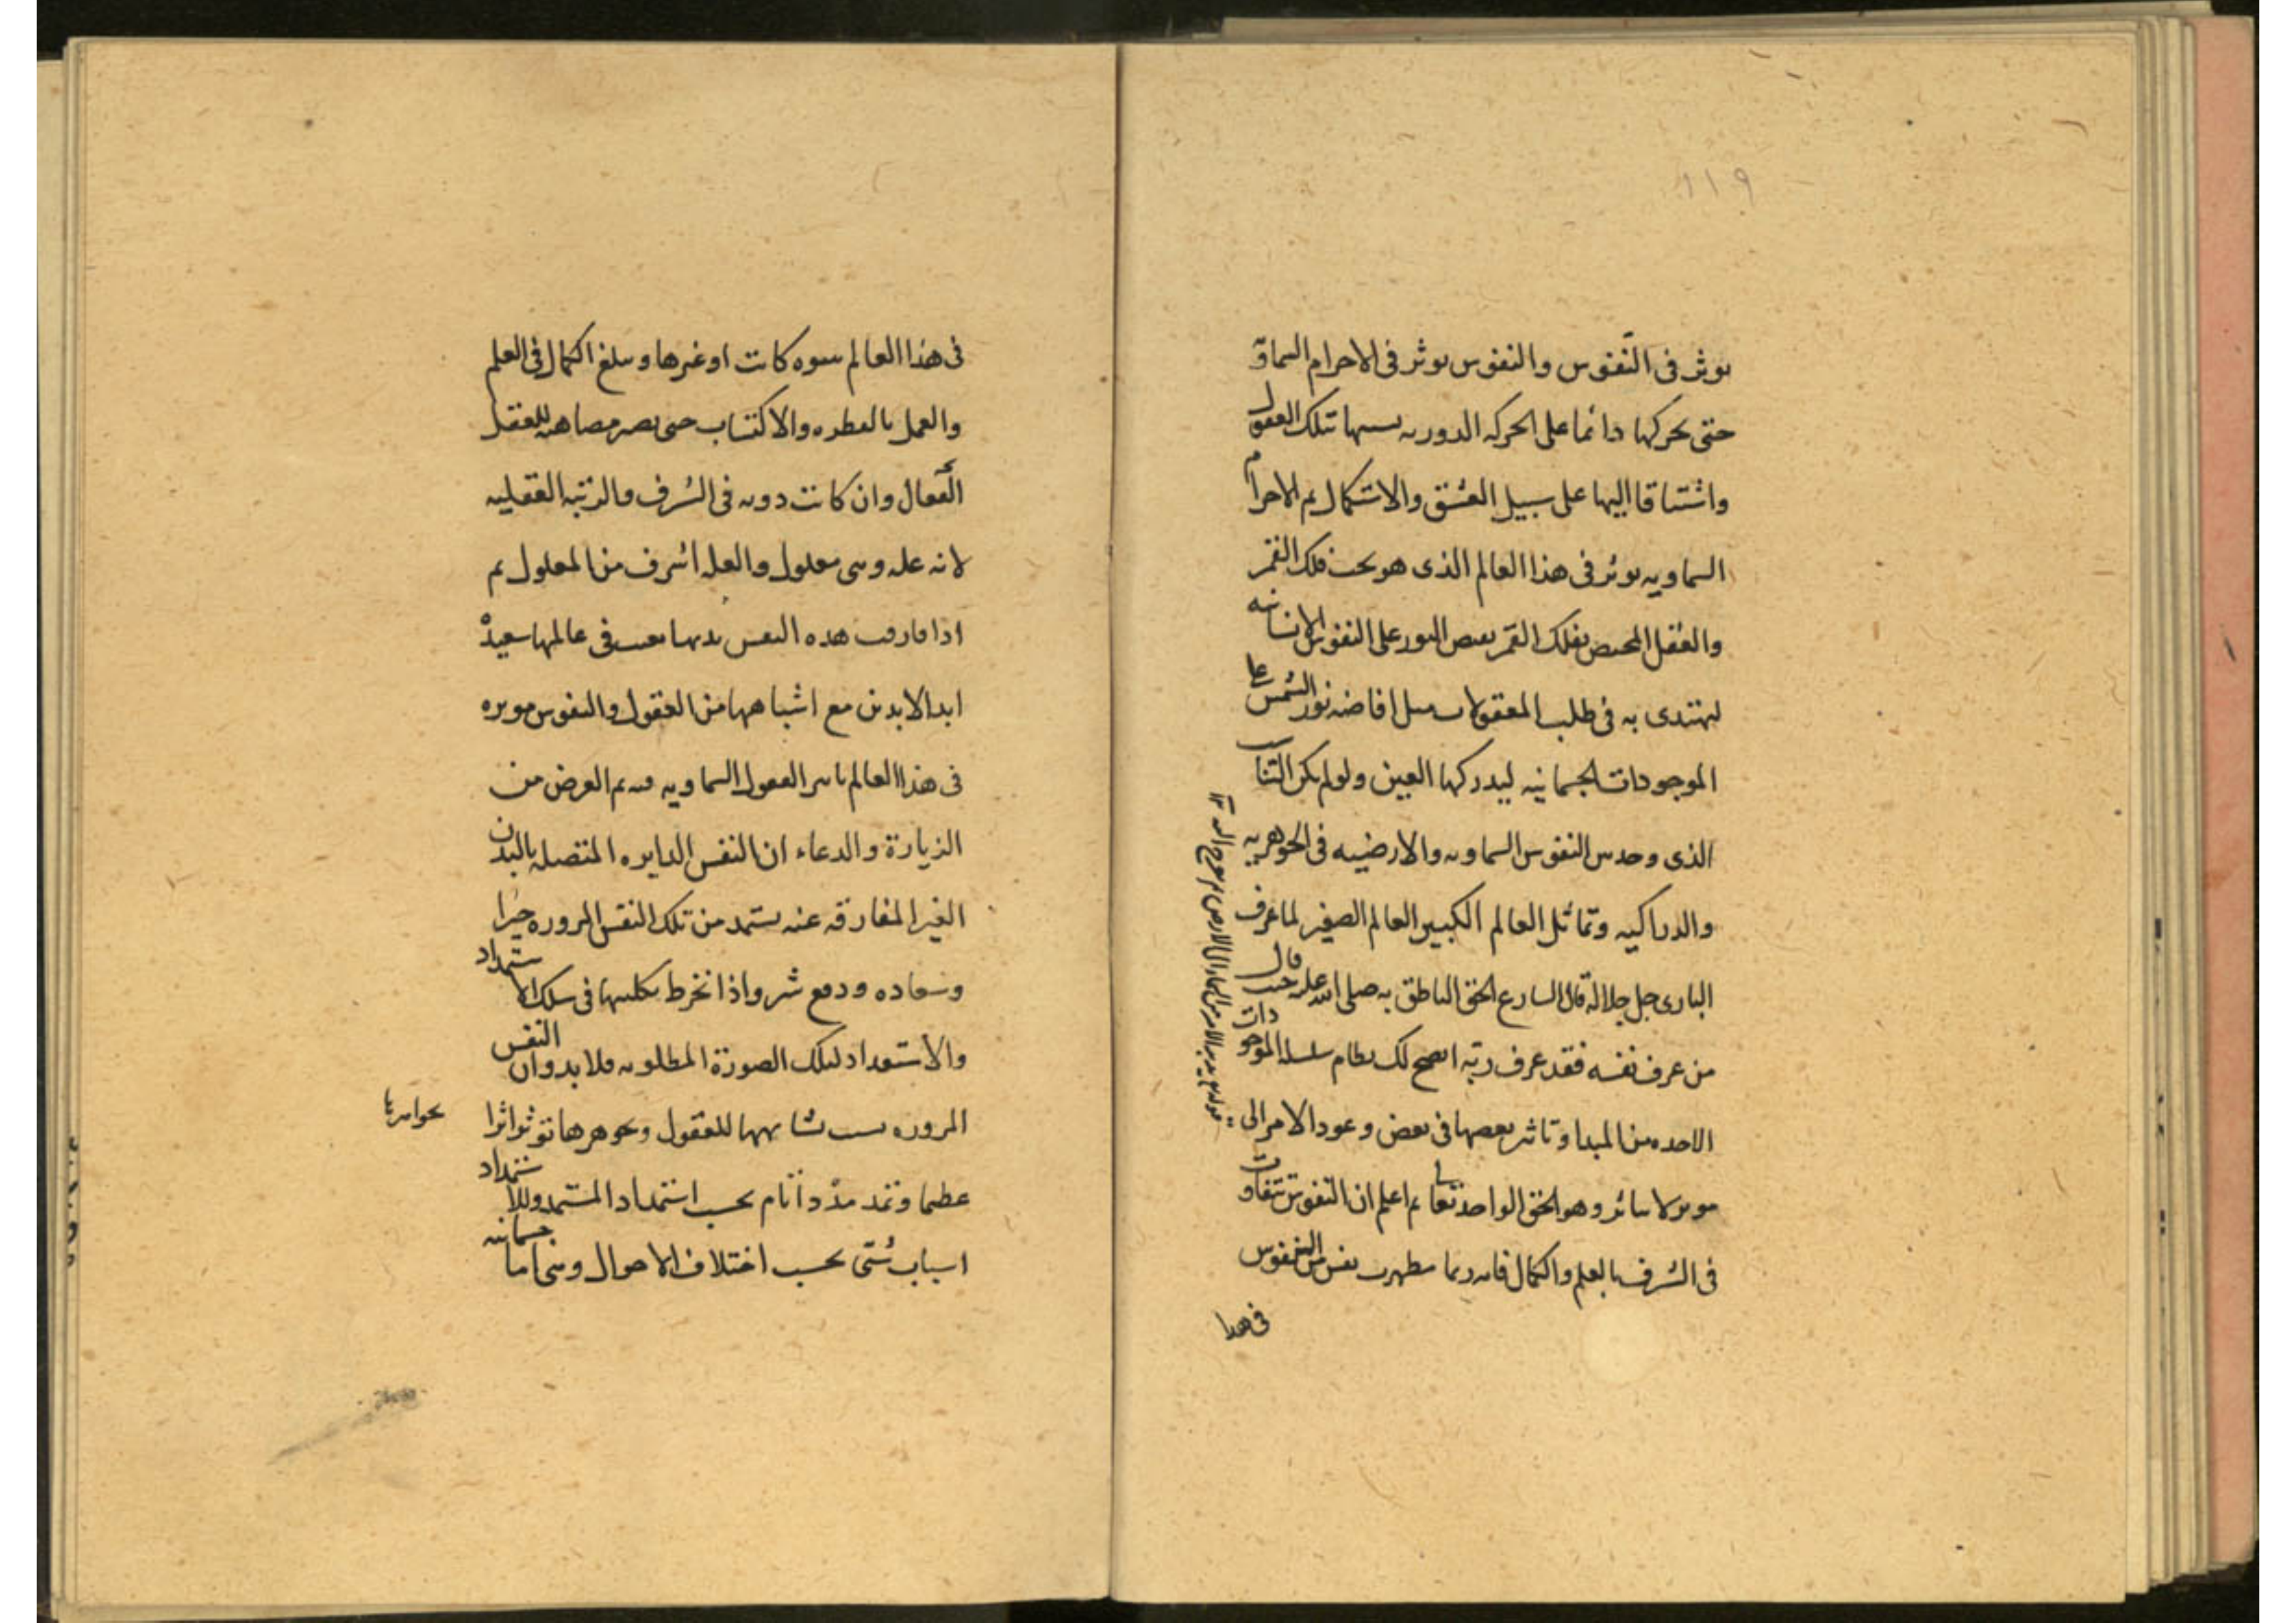 ١١٩
يوثر فى النفوس والنفوس يوثر فى الاجرام السماوية
حتى يحركها دائما على الحركه الدوريه تشبها بتلك العقول
واشتياقا اليها على سبيل العشق والاستكمال ثم الاجرام
السماويه يوثر فى هذا العالم الذى هو تحت فلك القمر
والعقل المختص بفلك القمر يفيض النور على النفوس الانسانيه
ليهتدى به فى طلب المعقولات مثل افاضه نور الشمس على
الموجودات الجسمانيه ليدركها العين ولو لم يكن التناسب
الذى وجد بين النفوس السماويه والارضيه فى الجوهريه
والدراكيه وتماثل العالم الكبير العالم الصغير لما عرف
البارى جل جلاله قال الشارع الحق الناطق به صلى الله عليه حيث قال
من عرف نفسه فقد عرف ربه اتضح لك نظام سلسله الموجودات
الاخذه من المبدا وتاثير بعضها فى بعض وعود الامر الى
موثر لا يتاثر وهو الحق الواحد تعالى ثم اعلم ان النفوس تتفاوت
فى الشرف بالعلم والكمال فانه ربما يظهرت نفس من النفوس
فى هذا
يدبر الامر من السماء الى الارض ثم يعرج اليه
فى هذا العالم نبويه كانت او غيرها ويبلغ الكمال فى العلم
والعمل بالفطره والاكتساب حتى يصير مضاهيه للعقل
الفعال وان كانت دونه فى الشرف والرتبه العقليه
لانه عله وهى معلول والعله اشرف من المعلول ثم
اذا فارقت هذه النفس بدنها بقيت فى عالمها سعيدة
ابد الابدين مع اشباهها من العقول والنفوس موثره
فى هذا العالم تاثير العقول السماويه ثم الغرض من
الزيارة والدعاء ان النفس الزايره المتصله بالبدن
الغير المفارقه عنه تستمد من تلك النفس المزوره خيرا
وسعاده ودفع شر واذا انخرط بكليتها فى سلك الاستمداد
والاستعداد لتلك الصورة المطلوبه فلا بد وان النفس
المزوره بسبب تشابهها للعقول وجوهرها توثر اثرا
عظيما وتمد مددا تام بحسب استمداد المستمد وللاستمداد
اسباب شتى بحسب اختلاف الاحوال وهى اما جسمانيه